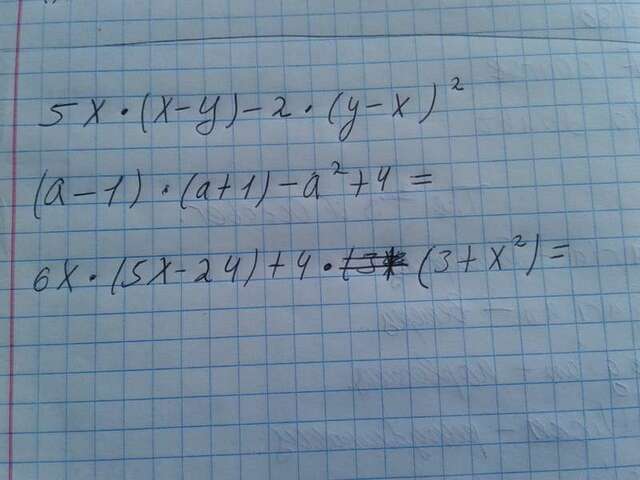 5x·(x-y)-2·(y-x)²
(a-1)·(a+1)-a²+4=
6x·(5x-24)+4·(3+x²)=